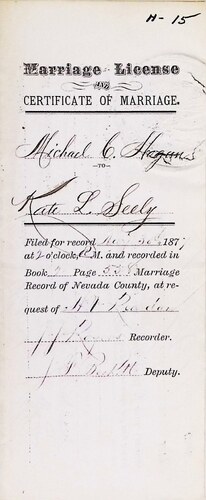 H-15
Marriage License
AND
CERTIFICATE OF MARRIAGE.
Michael C. Hogan
—TO—
Kate L. Seely
Filed for record 187
at 2 o'clock, P.M. and recorded in
Book Page 558 Marriage
Record of Nevada County, at re-
quest of
Rogers Recorder.
Deputy.